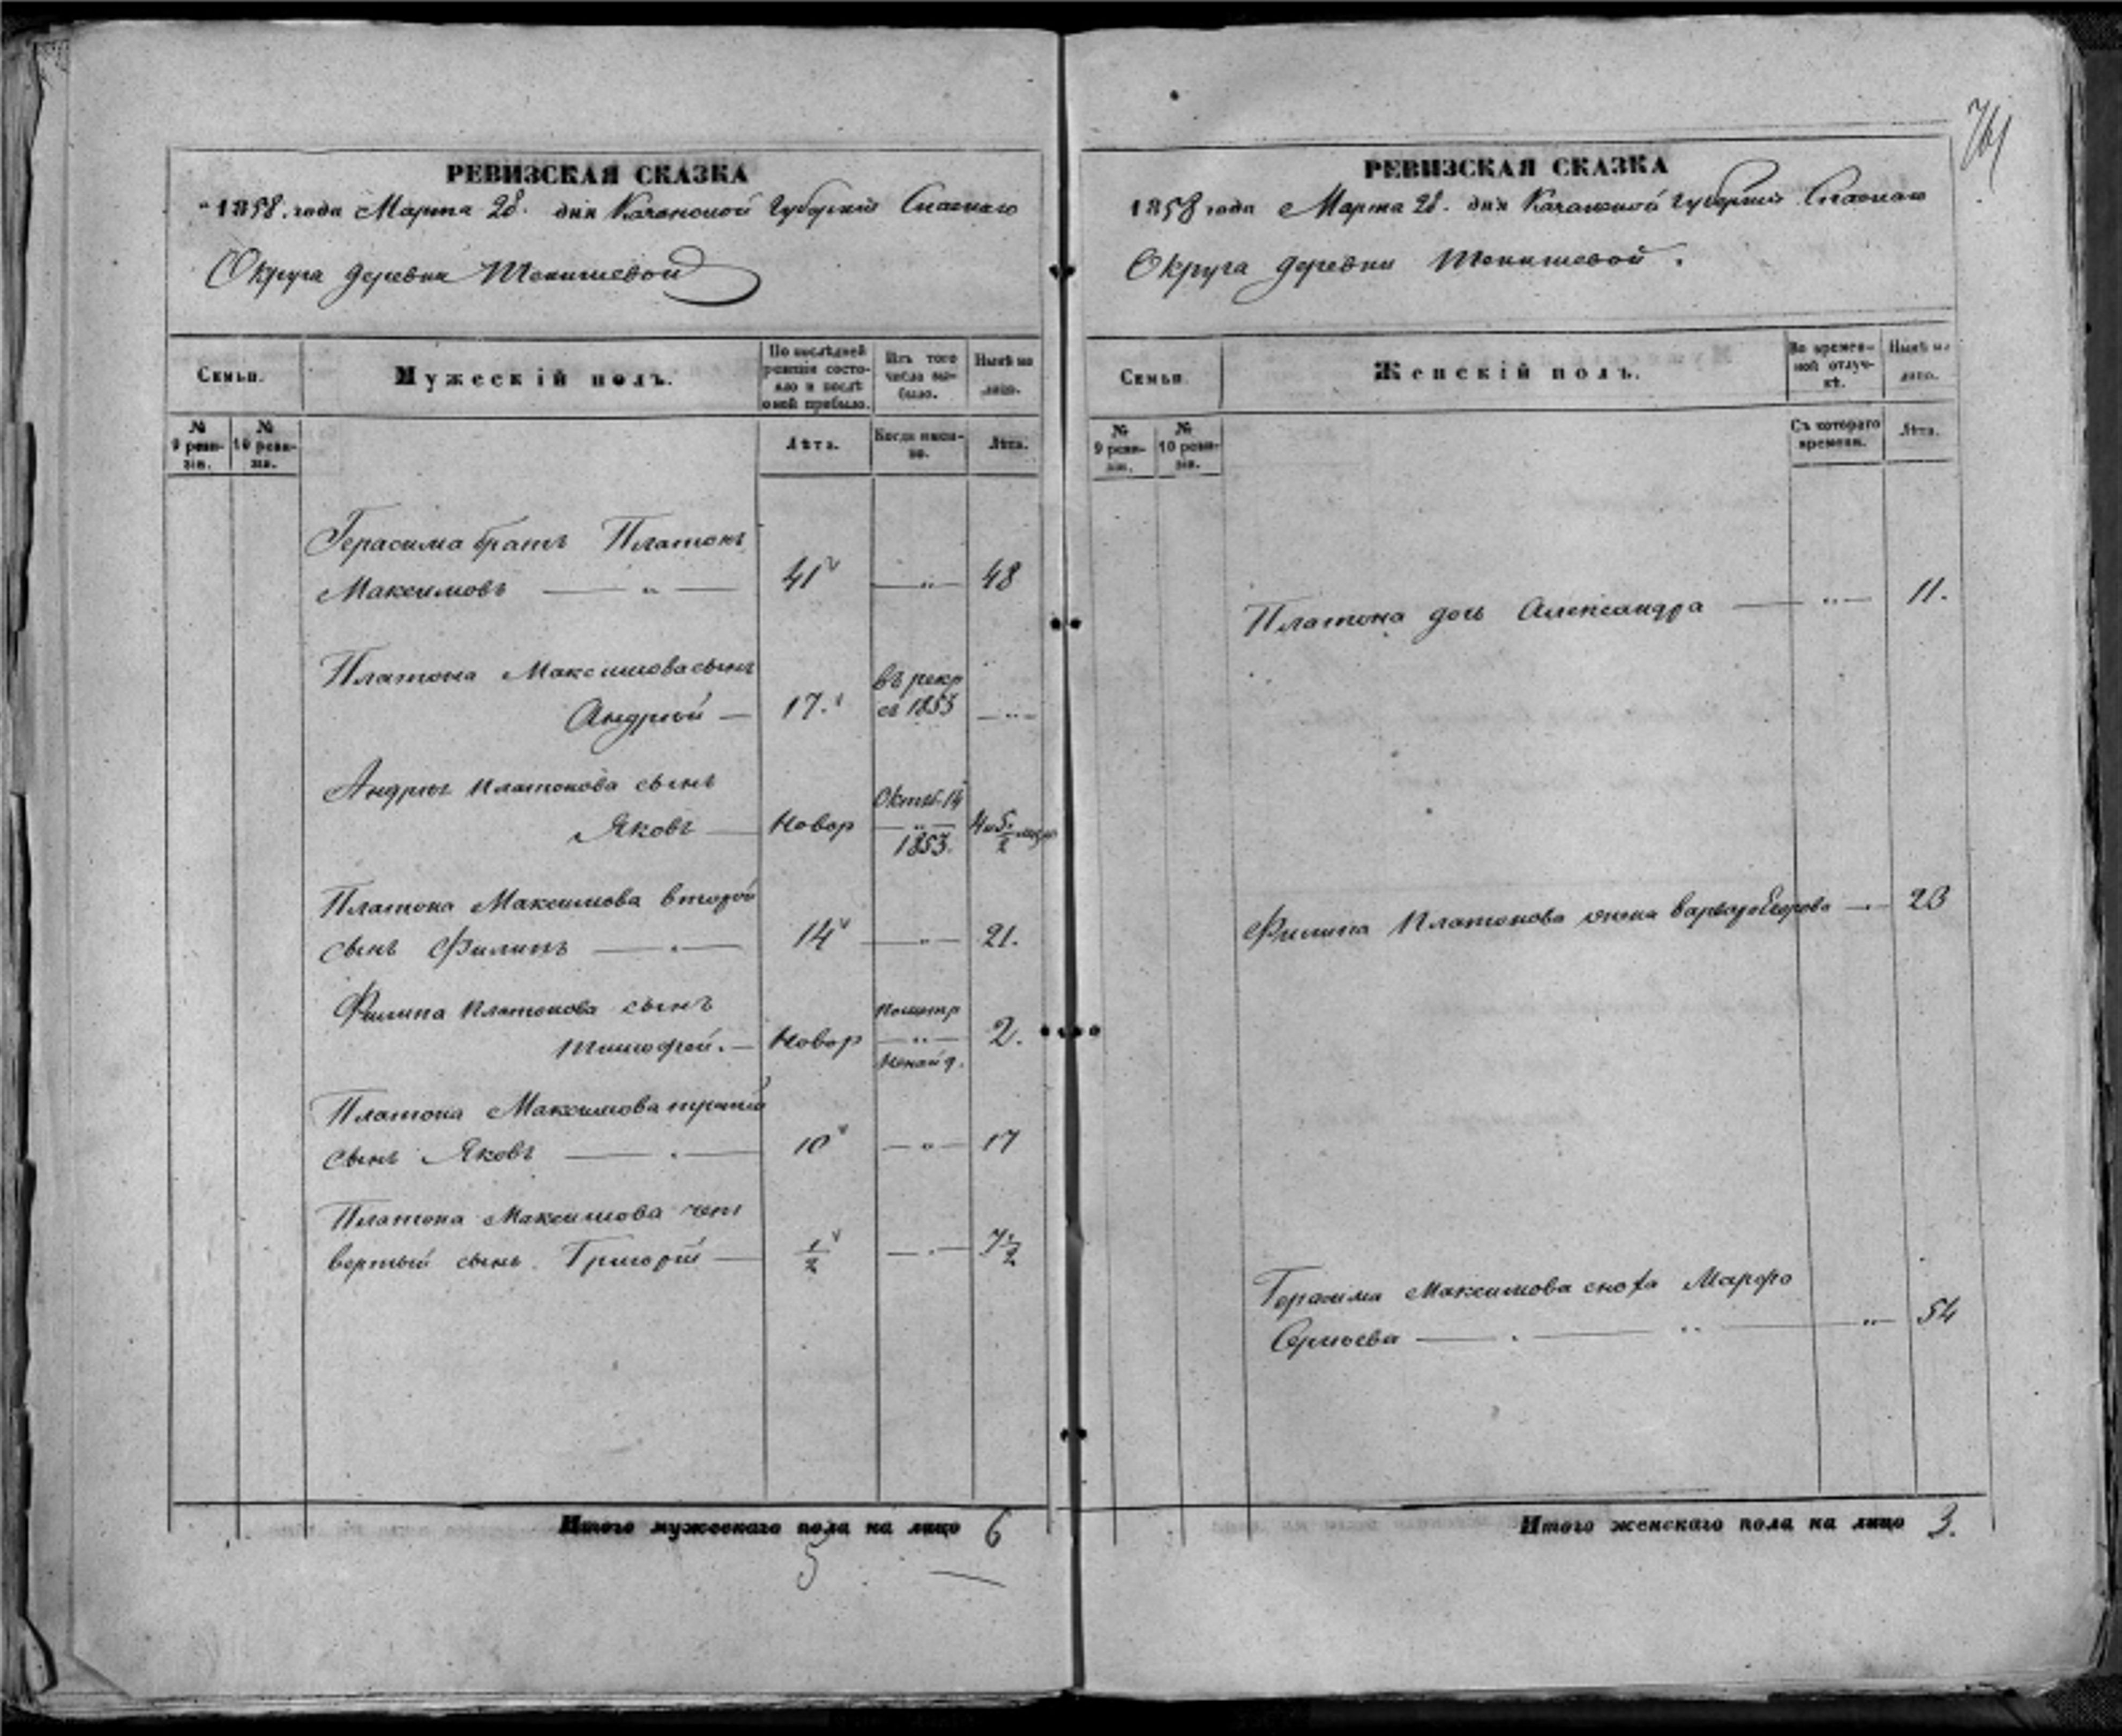 РЕВИЗСКАЯ СКАЗКА
1858. года Марта 28. дня Казанской Губерніи Спаскаго
Округа деревни Тенишевой
Семьи.
Мужескій полъ.
По послѣдней ревизіи состояло и послѣ оной прибыло.
Изъ того числа выбыло.
Нынѣ на лицо.
№ 9 ревизіи.
№ 10 ревизіи.
Лѣта.
Когда именно.
Лѣта.
Герасима братъ Платонъ
Максимовъ — " — 41 — " — 48
Платона Максимова сынъ въ рекр
Андрей — 17. съ 1853 — " —
Андрея Платонова сынъ Октяб. 14
Яковъ — Новор 1853. 4 1/2
Платона Максимова второй
сынъ Филипъ — " — 14 — " — 21.
Филипа Платонова сынъ
Тимофей. — Новор — " — 2.
Платона Максимова третій
сынъ Яковъ — " — 10 — " — 17
Платона Максимова чет
вертый сынъ Григорій — 1/2 — " — 7 1/2
Итого мужескаго пола на лицо 6
5
761
РЕВИЗСКАЯ СКАЗКА
1858 года Марта 28. дня Казанской Губерніи Спаскаго
Округа деревни Тенишевой.
Семьи.
Женскій полъ.
Во временной отлучкѣ.
Нынѣ на лицо.
№ 9 ревизіи.
№ 10 ревизіи.
Съ котораго времени.
Лѣта.
Платона дочь Александра — " — 11.
Филипа Платонова жена Варвара Егорова — " — 23
Герасима Максимова сноха Марфа
— " — 54
Итого женскаго пола на лицо 3.